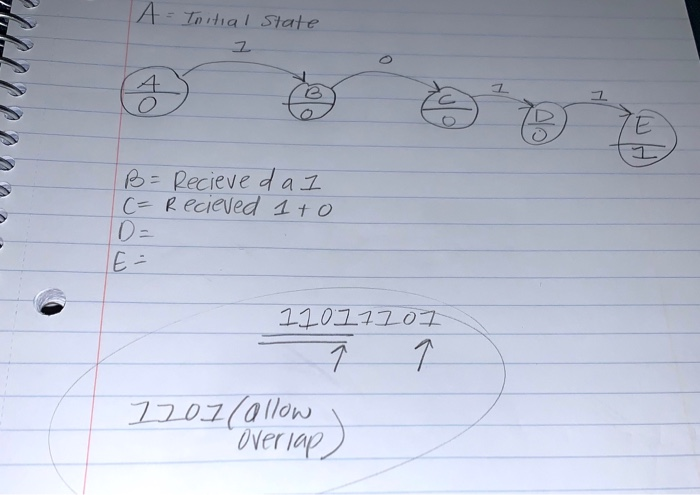 A = Initial State
1
0
1
1
A
0
B
0
C
0
D
0
E
1
B = Recieved a 1
C = Recieved 1 + 0
D =
E =
11011101
1101 (allow
overlap)